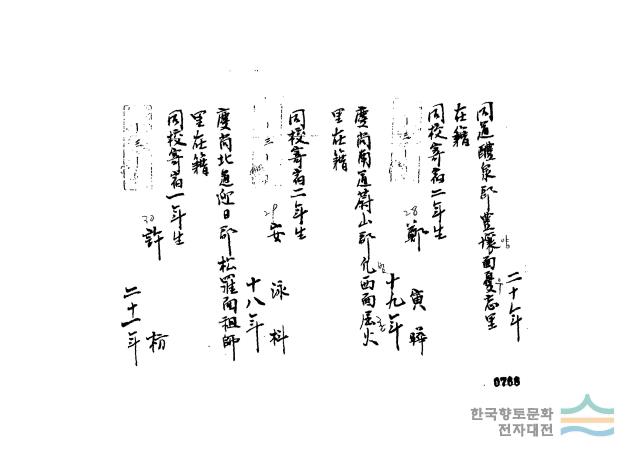 同道醴泉郡豊壤面憂忘里
在籍
同校寄宿二年生
28 鄭寅曄
十九年
慶尚南道蔚山郡凡西面屈火
里在籍
同校寄宿二年生
29 安泳
十八年
慶尚北道迎日郡松羅面祖師
里在籍
同校寄宿一年生
30 許
二十一年
한국향토문화
전자대전